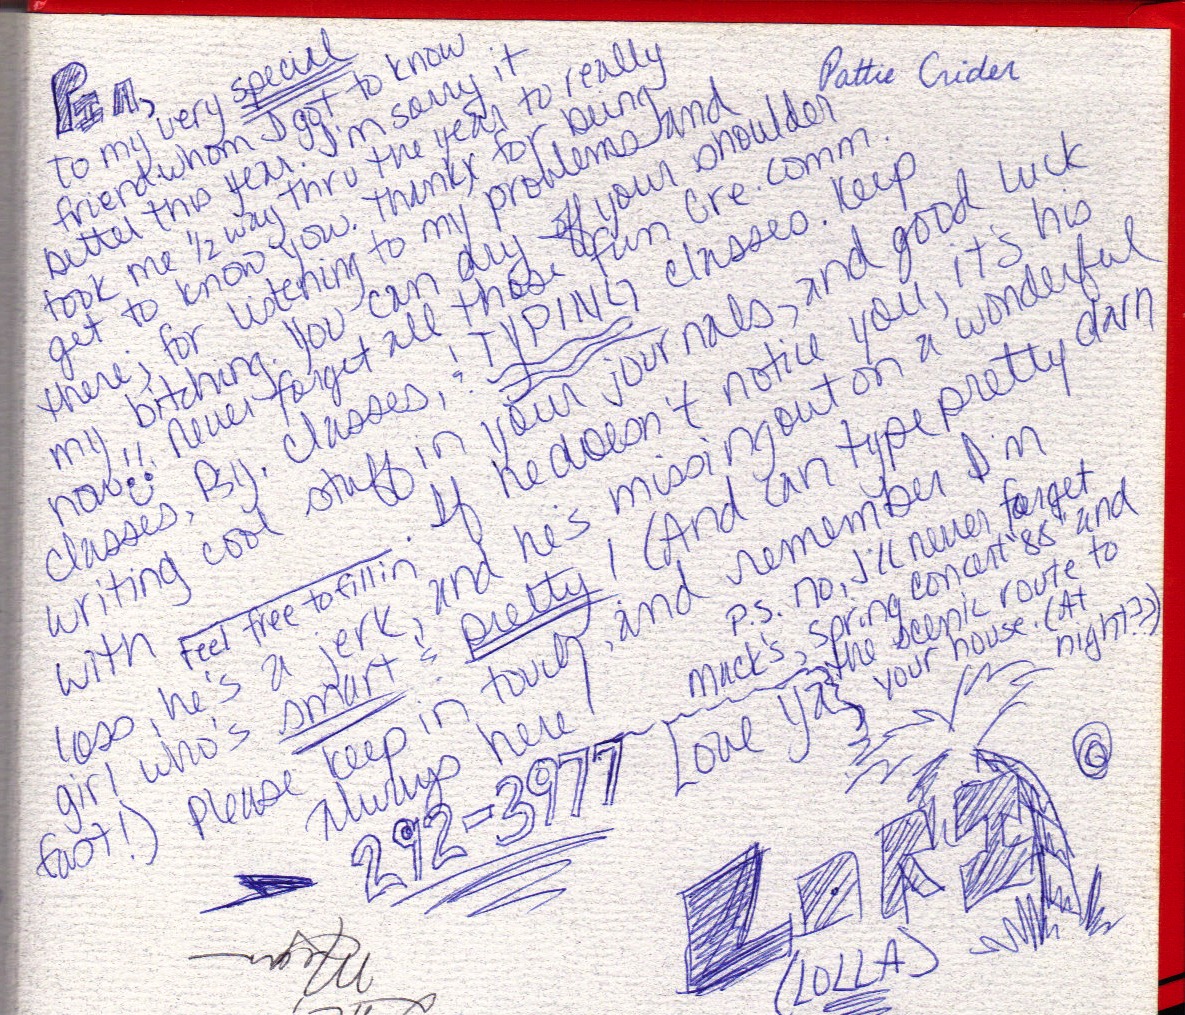 Pattie Crider
Pam,
to my very special
friend whom I got to know
better this year. I'm sorry it
took me 1/2 way thru the year to really
get to know you. thankx for being
there; for listening to my problems and
my bitching. You can dry off your shoulder
now!! Never forget all those fun Cre. Comm.
classes, By. classes, & TYPING classes. Keep
writing cool stuff in your journals, and good luck
with Feel free to fill in. If he doesn't notice you, it's his
loss, he's a jerk, and he's missing out on a wonderful
girl who's smart & pretty! (And can type pretty darn
fast!) Please keep in touch, and remember I'm
always here!
292-3977
p.s. no, I'll never forget
Mack's, spring concert "88" and
the scenic route to
your house. (At
night??)
Love Ya,
LORI
(LOLLA)